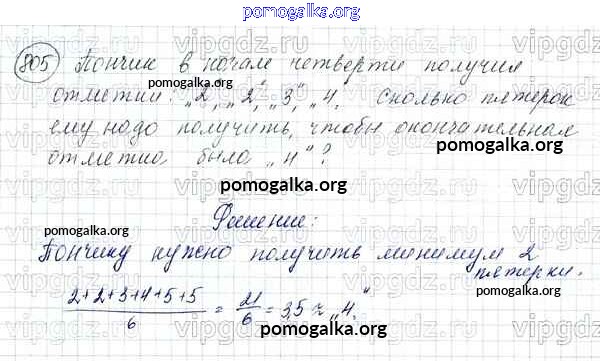 pomogalka.org
805 Пончик в начале четверти получил
отметки: „2", „2", „3", „4". Сколько пятерок
ему надо получить, чтобы окончательная
отметка была „4"?
pomogalka.org
Решение:
Пончику нужно получить минимум 2
пятерки.
2+2+3+4+5+5 / 6 = 21/6 = 3,5 ≈ „4"
pomogalka.org
pomogalka.org
pomogalka.org
pomogalka.org
pomogalka.org
pomogalka.org
vipgdz.ru